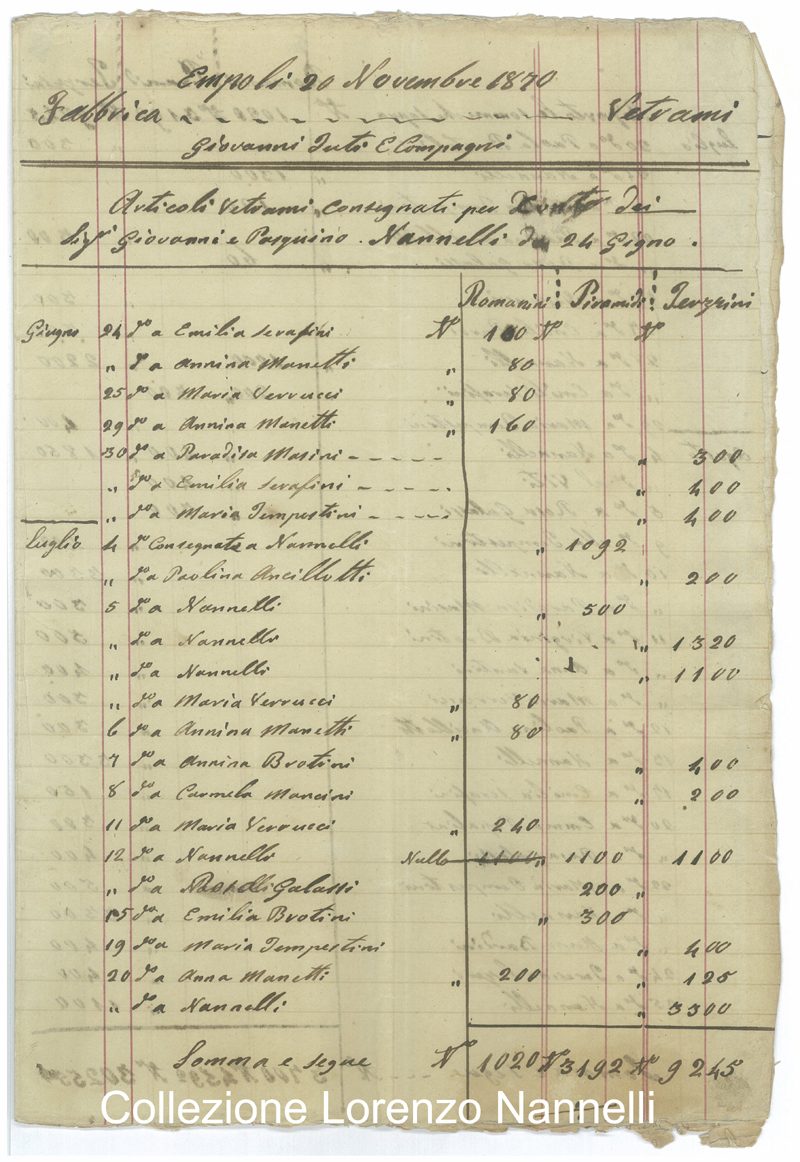 Empoli 20 Novembre 1870
Fabbrica Vetrami
Giovanni Tuti E Compagni
Articoli Vetrami, Consegnati per Conto dei
Sigi Giovanni e Pasquino . Nannelli da 24 Gigno .
Romanini Piramidi Terzzini
Giugno 24 do a Emilia Serafini No 100 No No
" do a Annina Manetti " 80
25 do a Maria Verrucci " 80
29 do a Annina Manetti " 160
30 do a Paradisa Masini " 300
" do a Emilia Serafini " 400
" do a Maria Tempestini " 400
luglio 4 do Consegnate a Nannelli " 1092
" do a Paolina Ancillotti " 200
5 do a Nannelli " 500
" do a Nannelli " 1320
" do a Nannelli " 1100
" do a Maria Verrucci " 80
6 do a Annina Manetti " 80
7 do a Annina Brotini " 400
8 do a Carmela Mancini " 200
11 do a Maria Verrucci " 240
12 do a Nannelli Nullo 1100 " 1100 1100
" do a Galassi 200 "
15 do a Emilia Brotini " 300
19 do a Maria Tempestini " 400
20 do a Anna Manetti " 200 " 125
" do a Nannelli " 3300
Somma e segue No 1020 No 3192 No 9245
Collezione Lorenzo Nannelli